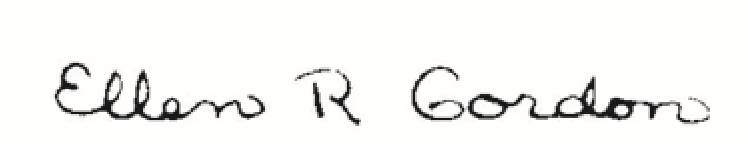 Ellen R Gordon